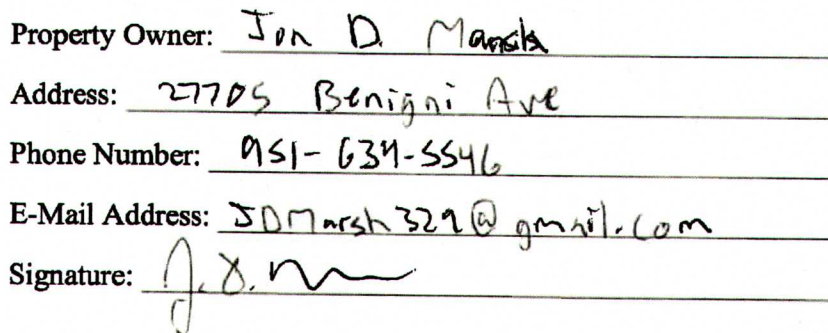 Property Owner: Jon D.
Address: 27705 Benigni Ave
Phone Number: 951-634-5546
E-Mail Address: JDMarsh329@gmail.com
Signature: J. D.